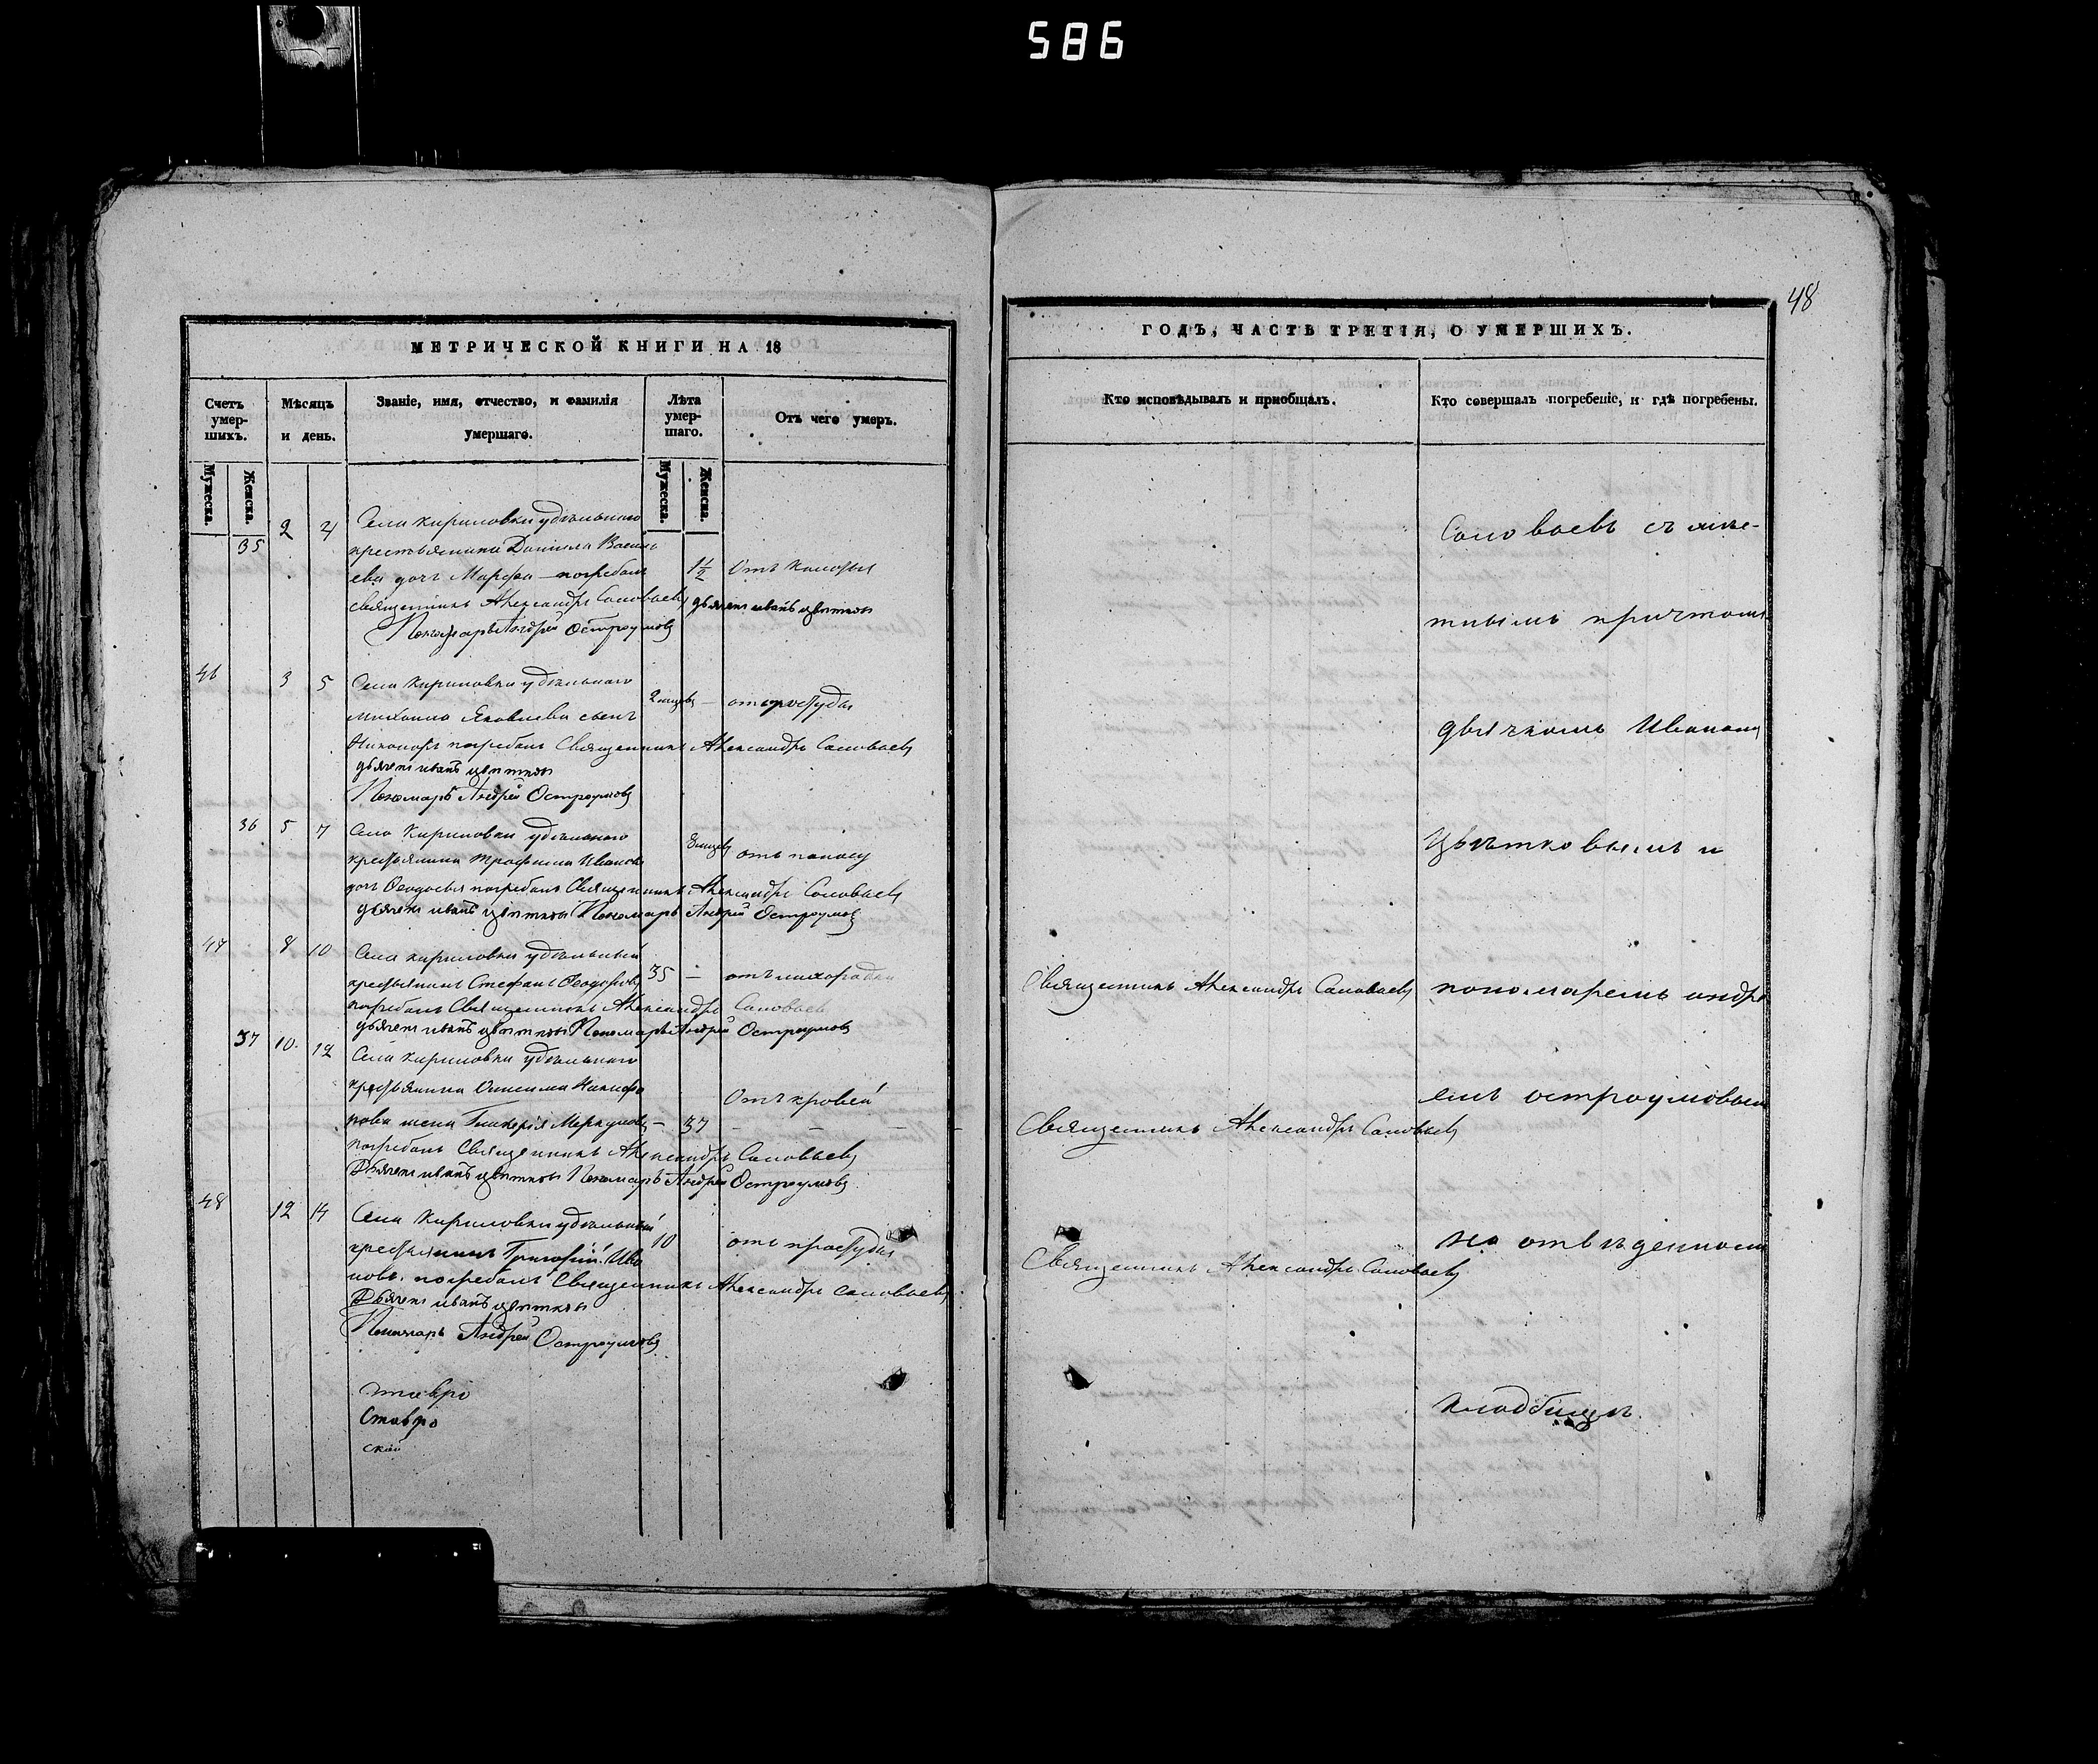 586
48
МЕТРИЧЕСКОЙ КНИГИ НА 18
ГОДЪ, ЧАСТЬ ТРЕТІЯ, О УМЕРШИХЪ.
Счетъ умер-шихъ.
Мѣсяцъ и день.
Званіе, имя, отчество, и фамилія умершаго.
Лѣта умер-шаго.
Отъ чего умеръ.
Мужеска.
Женска.
Мужеска.
Женска.
Кто исповѣдывалъ и пріобщалъ.
Кто совершалъ погребеніе, и гдѣ погребены.
35 2 4 Села Кириловки удѣльнаго
крестьянина Данила Василь
ева дочь Марфа – погребалъ 1½
священникъ Александръ Соловьевъ дьячекъ иванъ цвѣтковъ
Пономарь Андрей Остроумовъ
46 3 5 Села Кириловки удѣльнаго
михаила Яковлева сынъ – отъ простуды
погребалъ Священникъ Александръ Соловьевъ
дьячекъ иванъ цвѣтковъ
Пономарь Андрей Остроумовъ
36 5 7 Села Кириловки удѣльнаго
крестьянина трофима Иванова отъ поносу
дочь Феодосья погребалъ Священникъ Александръ Соловьевъ
дьячекъ иванъ цвѣтковъ Пономарь Андрей Остроумовъ
47 8 10 Села кириловки удѣльный
крестьянинъ Стефанъ Феодоровъ 35 – отъ лихорадки
погребалъ Священникъ Александръ Соловьевъ
дьячекъ иванъ цвѣтковъ Пономарь Андрей Остроумовъ
37 10 12 Села кириловки удѣльнаго
крестьянина Онисима Никифо
рова жена Гликерія Меркулова – 37 – – –
Отъ кровей
погребалъ Священникъ Александръ Соловьевъ
Дьячекъ иванъ цвѣтковъ Пономарь Андрей Остроумовъ
48 12 14 Села Кириловки удѣльный
крестьянинъ Григорій Ива 10 отъ простуды
новъ. погребалъ Священникъ Александръ Соловьевъ
Дьячекъ иванъ цвѣтковъ
Пономарь Андрей Остроумовъ
Ставро
ской
Священникъ Александръ Соловьевъ
Священникъ Александръ Соловьевъ
Священникъ Александръ Соловьевъ
Соловьевъ съ мѣс-
тнымъ причтомъ
дьячкомъ Иваномъ
Цвѣтковымъ и
пономаремъ андре
емъ остроумовым
на отвѣденном
кладбищѣ.